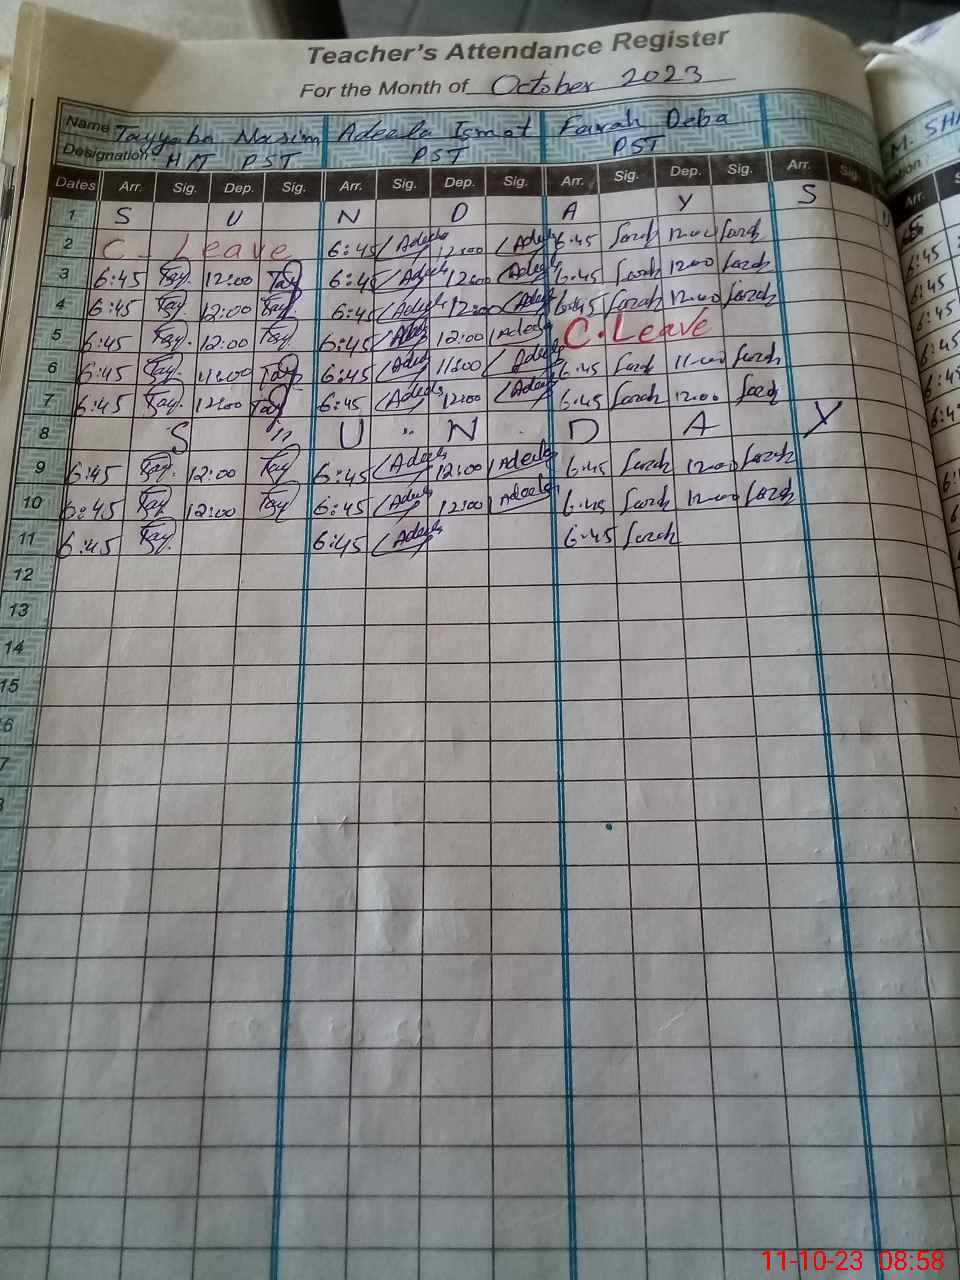 Teacher's Attendance Register
For the Month of October 2023
Name Tayyaba Nasim Adeela Ismat Farah Deba M. SH
Designation HM PST PST PST
Dates Arr. Sig. Dep. Sig. Arr. Sig. Dep. Sig. Arr. Sig. Dep. Sig. Arr. Sig. Arr.
1 S U N D A Y S
2 C. Leave 6:45 Adeela 12:00 Adeela 6:45 Farah 12:00 Farah 6:45
3 6:45 Tay. 12:00 Tay 6:45 Adeela 12:00 Adeela 6:45 Farah 12:00 Farah 6:45
4 6:45 Tay. 12:00 Tay. 6:45 Adeela 12:00 Adeela 6:45 Farah 12:00 Farah 6:45
5 6:45 Tay. 12:00 Tay 6:45 Adeela 12:00 Adeela C. Leave 6:45
6 6:45 Tay. 11:00 Tay 6:45 Adeela 11:00 Adeela 6:45 Farah 11:00 Farah
7 6:45 Tay. 12:00 Tay 6:45 Adeela 12:00 Adeela 6:45 Farah 12:00 Farah
8 S " U " N D A Y
9 6:45 Tay. 12:00 Tay 6:45 Adeela 12:00 Adeela 6:45 Farah 12:00 Farah
10 6:45 Tay 12:00 Tay 6:45 Adeela 12:00 Adeela 6:45 Farah 12:00 Farah
11 6:45 Tay. 6:45 Adeela 6:45 Farah
12
13
14
15
6
7
11-10-23 08:58